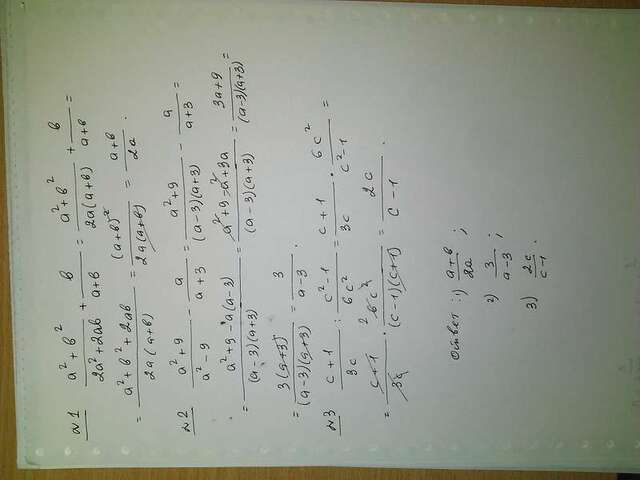 N1 (a²+b²)/(2a²+2ab) + b/(a+b) = (a²+b²)/(2a(a+b)) + b/(a+b) =
= (a²+b²+2ab)/(2a(a+b)) = (a+b)²/(2a(a+b)) = (a+b)/(2a).
N2 (a²+9)/(a²-9) - a/(a+3) = (a²+9)/((a-3)(a+3)) - a/(a+3) =
= (a²+9-a(a-3))/((a-3)(a+3)) = (a²+9-a²+3a)/((a-3)(a+3)) = (3a+9)/((a-3)(a+3)) =
= 3(a+3)/((a-3)(a+3)) = 3/(a-3).
N3 (c+1)/(3c) : (c²-1)/(6c²) = (c+1)/(3c) · 6c²/(c²-1) =
= (c+1)/(3c) · 6c²/((c-1)(c+1)) = 2c/(c-1).
Ответ: 1) (a+b)/(2a) ;
2) 3/(a-3) ;
3) 2c/(c-1) .